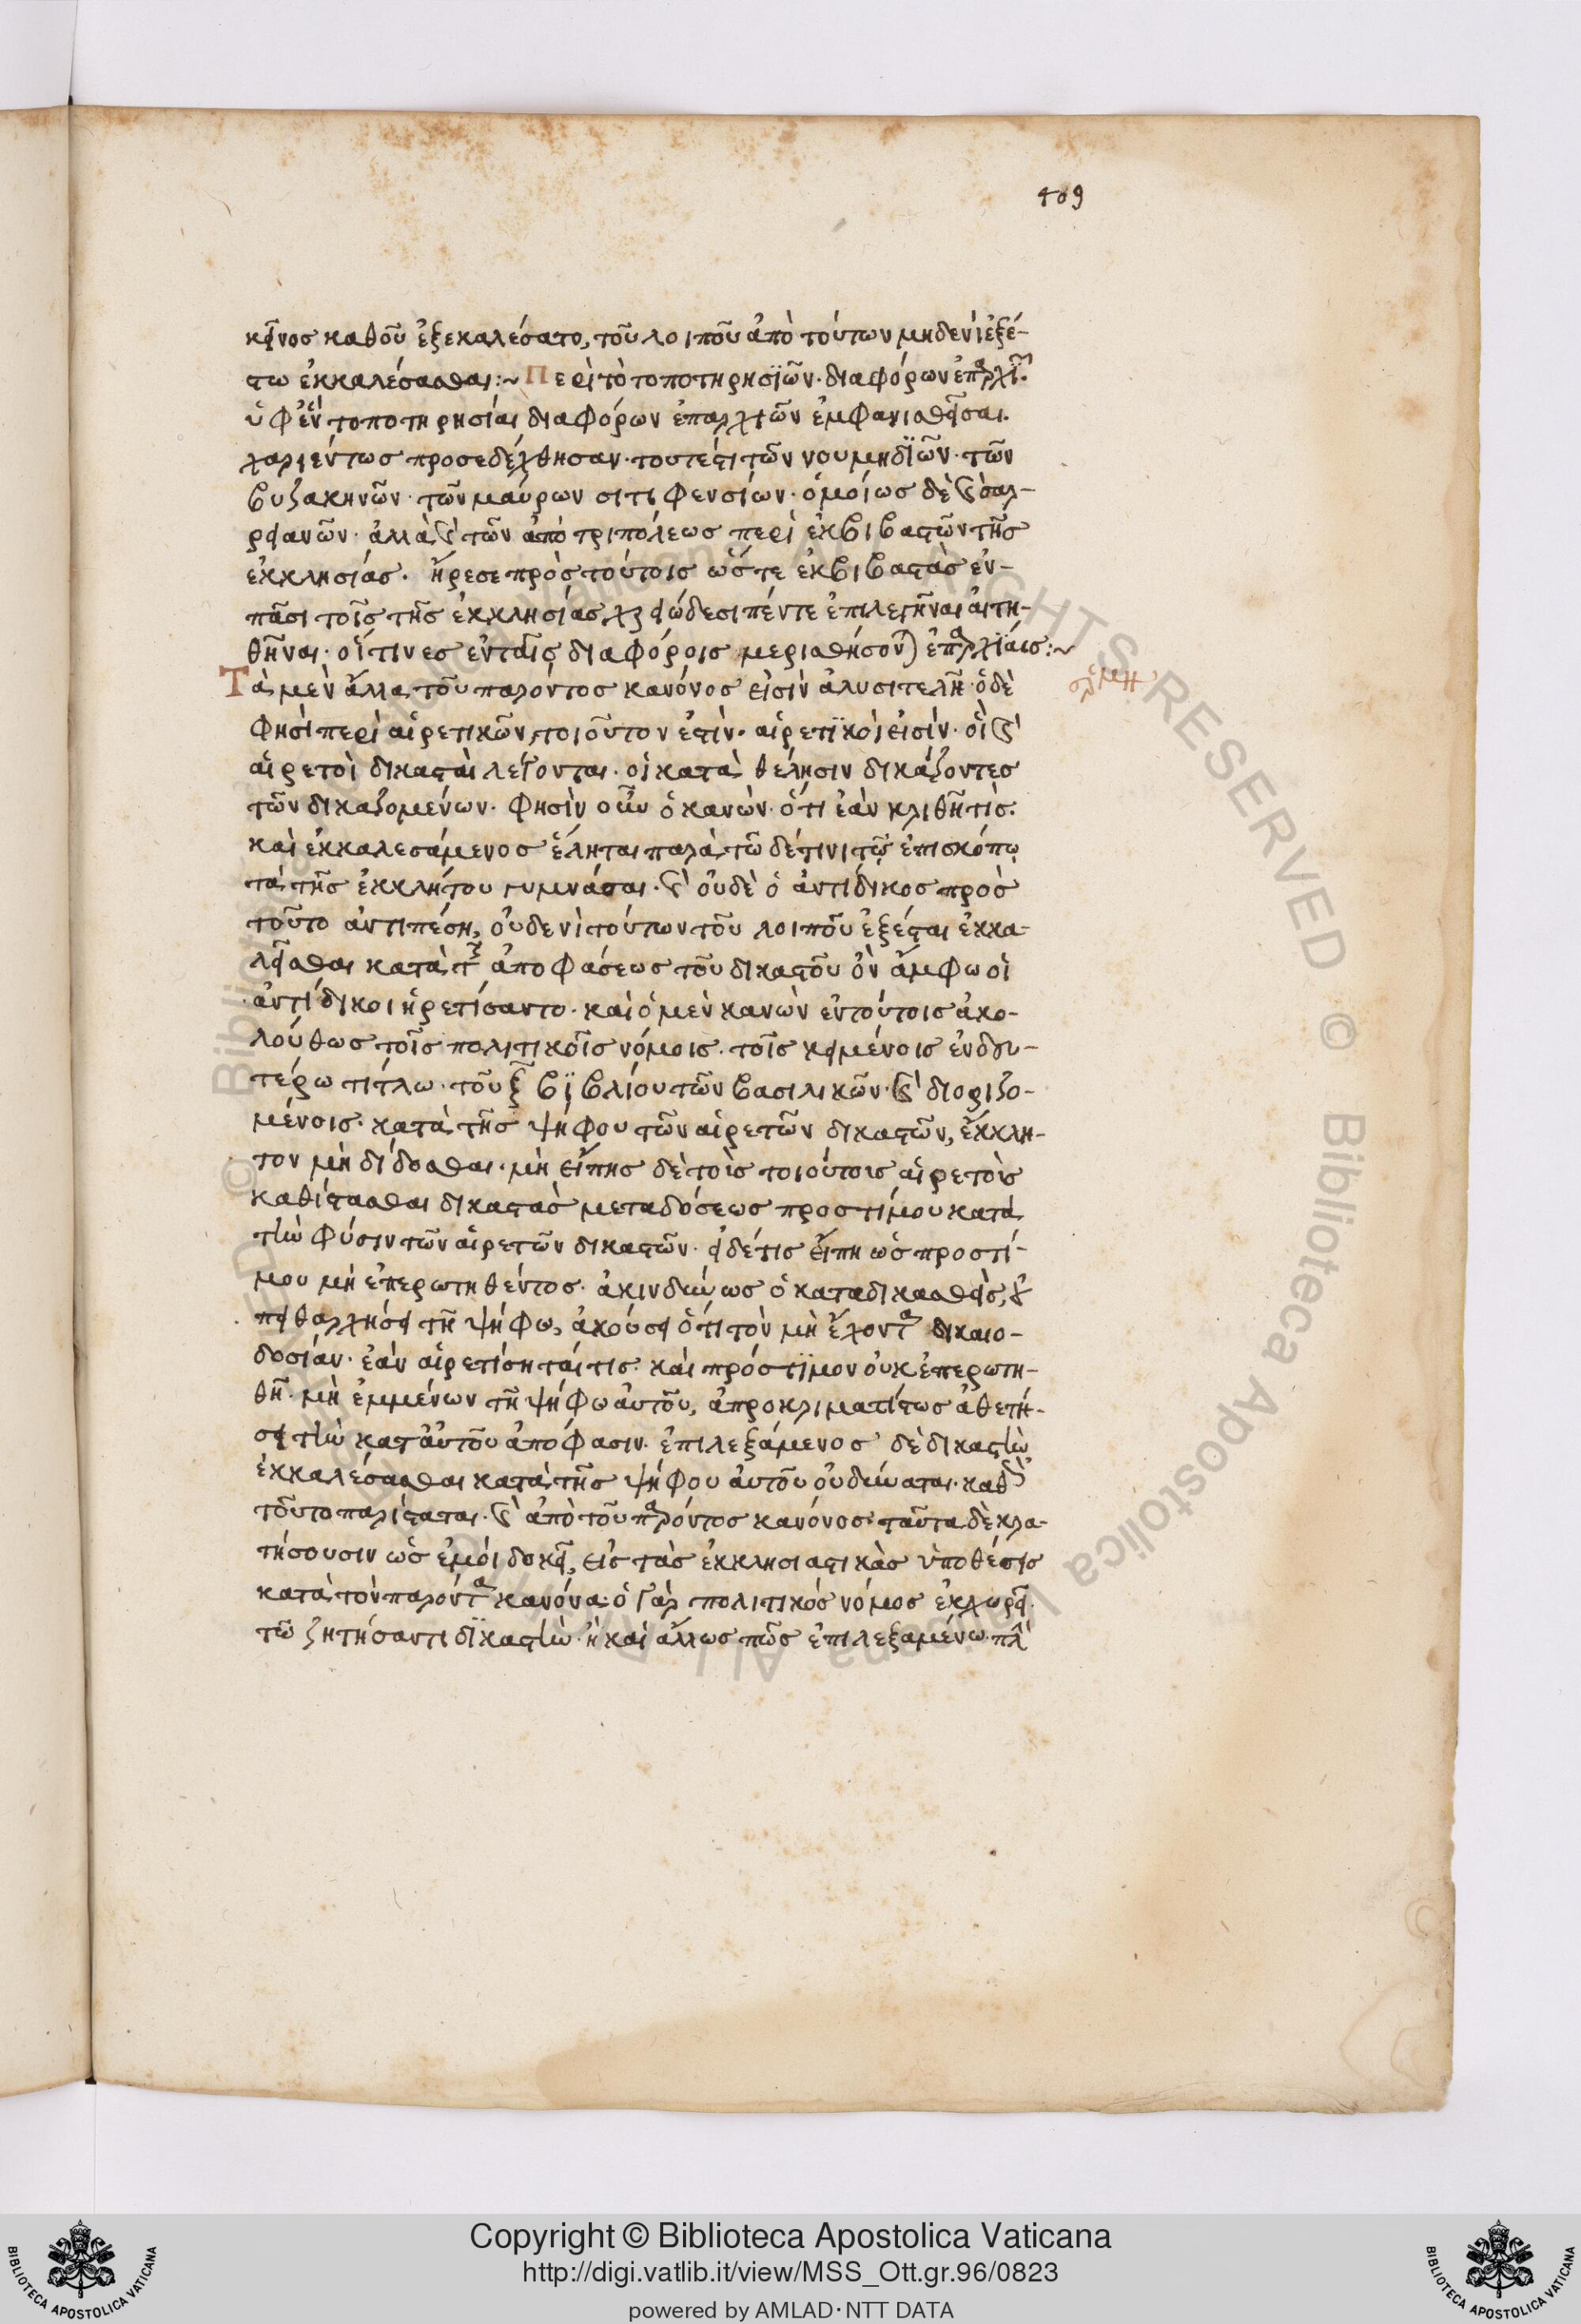 409
κεῖνος καθοῦ ἐξεκαλέσατο, τοῦ λοιποῦ ἀπὸ τούτων μηδενὶ ἐξέ-
στω ἐκκαλέσασθαι:~ Περὶ τὸ τοποτηρησϊῶν· διαφόρων ἐπαρχϊ῀·
ὑφἓν τοποτηρησίαι διαφόρων ἐπαρχιῶν ἐμφανισθεῖσαι·
χαριέντως προσεδέχθησαν· τουτέστι τῶν νουμηδϊῶν· τῶν
βυζακηνῶν· τῶν μαύρων σιτιφενσίων· ὁμοίως δὲ καὶ σαρ-
ρειανῶν· ἀλλὰ καὶ τῶν ἀπὸ τριπόλεως περὶ ἐκβιβαστῶν τῆς
ἐκκλησίας· ἤρεσε πρὸς τούτοις ὥστε ἐκβιβαστὰς ἐν-
πᾶσι τοῖς τῆς ἐκκλησίας χρειώδεσι πέντε ἐπιλεγῆναι αἰτη-
θῆναι· οἵτινες ἐν ταῖς διαφόροις μερισθήσονται ἐπαρχϊαις:~
Τὰ μὲν ἄλλα τοῦ παρόντος κανόνος εἰσὶν ἀλυσιτελῆ· ὃ δὲ
φησὶ περὶ αἱρετικῶν, τοιοῦτον ἐστίν· αἱρετϊκοὶ εἰσίν· οἱ καὶ
αἱρετοὶ δικασταὶ λέγονται· οἱ κατὰ θέλησιν δικάζοντες
τῶν δικαζομένων· φησὶν οὖν ὁ κανών· ὅτι ἐὰν κριθῆ τίς·
καὶ ἐκκαλεσάμενος ἕληται παρὰ τῶ δέτινι τῷ ἐπισκόπῳ
τὰ τῆς ἐκκλήτου γυμνάσαι· καὶ οὐδὲ ὁ ἀντίδικος πρὸς
τοῦτο ἀντιπέση, οὐδενὶ τούτων τοῦ λοιποῦ ἐξέσται ἐκκα-
λεῖσθαι κατὰ τῆς ἀποφάσεως τοῦ δικαστοῦ ὃν ἄμφω οἱ
ἀντίδικοι ἡρετίσαντο· καὶ ὁ μὲν κανὼν ἐν τούτοις ἀκο-
λούθως τοῖς πολιτικοῖς νόμοις· τοῖς κειμένοις ἐν δευ-
τέρω τίτλω· τοῦ ζ βϊβλίου τῶν βασιλικῶν· καὶ διοριζο-
μένοις· κατὰ τῆς ψήφου τῶν αἱρετῶν δικαστῶν, ἔκκλη-
τον μὴ δίδοσθαι· μὴ εἴπης δὲ τοὶς τοιούτοις αἱρετοὺς
καθίστασθαι δικαστὰς μεταδόσεως προστίμου κατὰ
τὴν φύσιν τῶν αἱρετῶν δικαστῶν· εἰ δέ τις εἴπη ὡς προστί-
μου μὴ ἐπερωτηθέντος· ἀκινδύνως ὁ καταδικασθεὶς, οὐ
πειθαρχήσει τῆ ψήφω, ἀκούσει ὅτι τὸν μὴ ἔχοντα δικαιο-
δοσίαν· ἐὰν αἱρετίσηταί τις· καὶ πρόστϊμον οὐκ ἐπερωτη-
θῆ· μὴ ἐμμένων τῆ ψήφω αὐτοῦ, ἀπροκριματίστως ἀθετή-
σει τὴν κατ αὐτοῦ ἀπόφασιν· ἐπιλεξάμενος δὲ δικαστὴν
ἐκκαλέσασθαι κατὰ τῆς ψήφου αὐτοῦ οὐ δύναται· καθὼς
τοῦτο παρίσταται· καὶ ἀπὸ τοῦ παρόντος κανόνος· ταῦτα δὲ κρα-
τήσουσιν ὡς ἐμοὶ δοκεῖ, εἰς τὰς ἐκκλησιαστικὰς ὑποθέσεις
κατὰ τὸν παρόντα κανόνα· ὁ γὰρ πολιτικὸς νόμος ἐκχωρεῖ·
τῶ ζητήσαντι δϊκαστὴν· ἢ καὶ ἄλλως πῶς ἐπιλεξαμένω· πλὴ
Copyright © Biblioteca Apostolica Vaticana
http://digi.vatlib.it/view/MSS_Ott.gr.96/0823
powered by AMLAD·NTT DATA